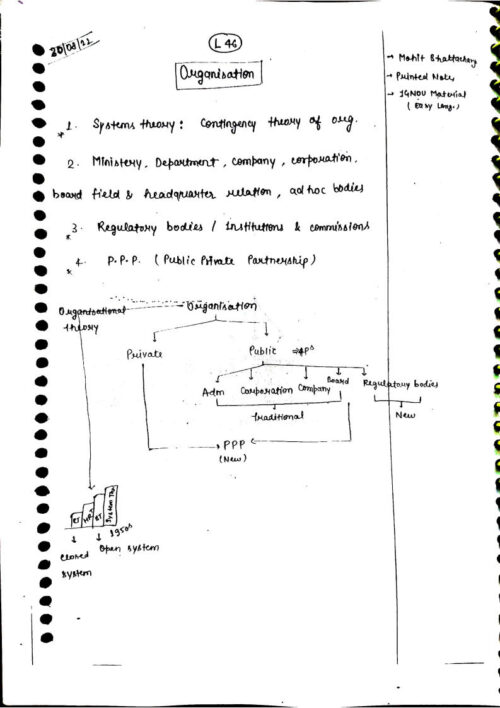 20/08/21
L 46
Organisation
→ Mohit Bhattacharya
→ Printed Notes
→ IGNOU Material
(Easy Lang.)
* 1. Systems theory: Contingency theory of org.
2. Ministery, Department, company, corporation,
board field & headquarter relation, ad hoc bodies
* 3. Regulatory bodies / Institutions & commissions
* 4. P.P.P. (Public Private Partnership)
Organisational theory
Organisation
Private
Public
Adm Corporation Company Board Regulatory bodies
Traditional
New
PPP
(New)
System Theo
1950s
Closed system
Open system